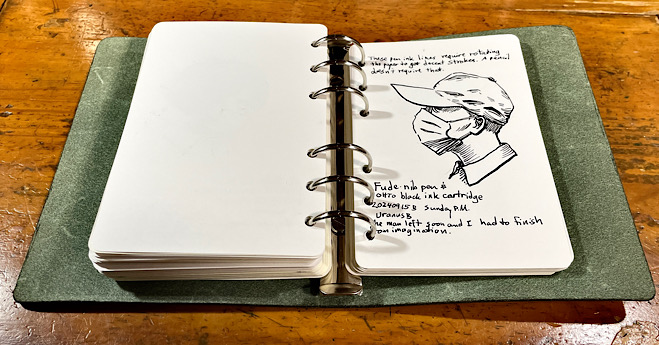 These pen ink lines require rotating
the paper to get decent strokes. A pencil
doesn't require that.
Fude-nib pen &
otto black ink cartridge
20240915 B Sunday P.M.
Uranus B
he man left soon and I had to finish
on imagination.